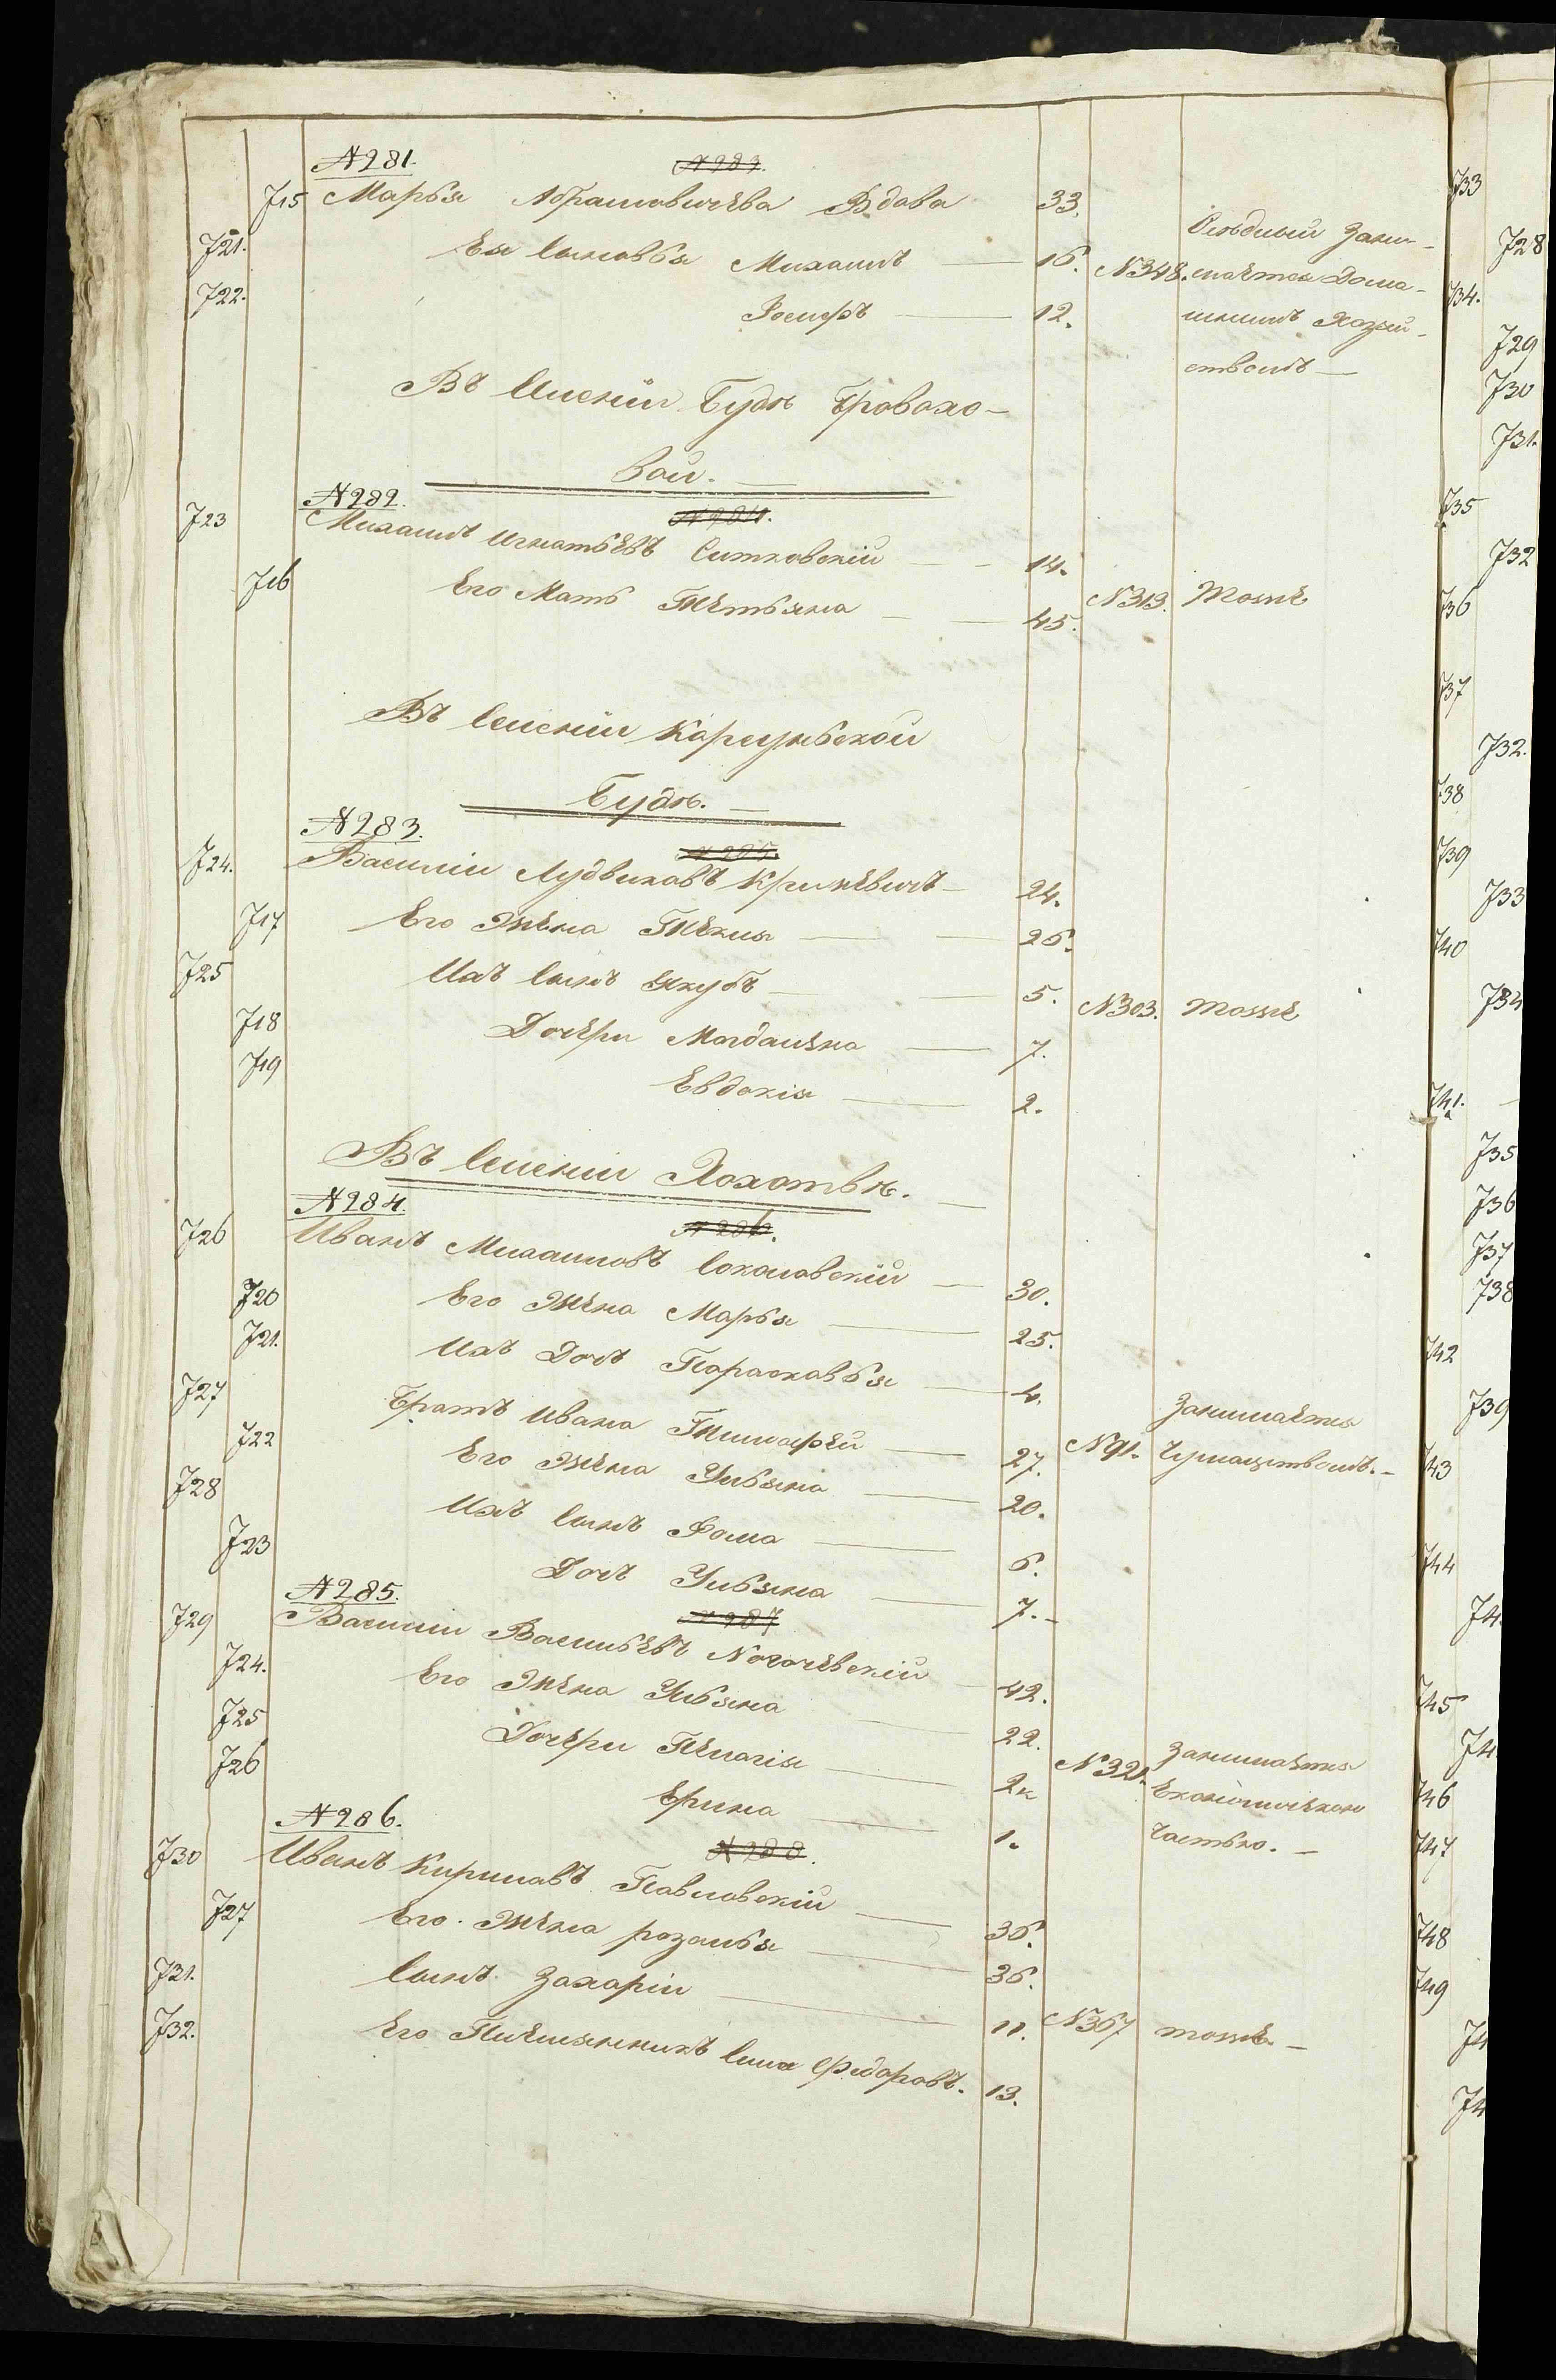 № 281. № 283.
715 Марья Абрамовичева Вдова 33.
721. Ея Сыновья Михаилъ 16. №348. Бѣдный Зани-
722. Іосифъ 12. мается Дома-
шнимъ Хозяй-
ствомъ
Въ Имѣніи Будѣ Бровахо-
вой.
№ 282. № 284.
723 Михаилъ Игнатьевъ Ситковскій 14.
716 Его Мать Тетьяна 45. №313. Тоже
Въ Имѣніи Карсуньской
Будѣ.
№ 283. № 285.
724. Василіи Лудвиковъ Криневичъ 24.
717 Его Жена Текля 26.
725 Ихъ Сынъ Якубъ 5. №303. тоже
718 Дочери Магдалена 7.
719 Евдокія 2.
Въ Имѣніи Хохотвѣ.
№ 284. № 286.
726 Иванъ Михаиловъ Соколовскій 30.
720 Его Жена Марья 25.
721. Ихъ Дочь Парасковья 4.
727 Братъ Ивана Тимофей 27. №91. Занимается
722 Его Жена Ульяна 20. Чумацтвомъ.
728 Ихъ Сынъ Фома 6.
723 Дочь Ульяна 7.
№ 285. № 287
729 Василіи Васильевъ Ногачевскій 42.
724. Его Жена Ульяна 22.
725 Дочери Пелагія 2 №321. Занимается
726 Ерина 1. Економическою
Частью.
№ 286. № 288.
730 Иванъ Кириловъ Павловскій 36.
727 Его Жена розалья 36.
731. Сынъ Захаріи 11. №367 тоже
732. Его Племянникъ Сила Федоровъ. 13.
733
728
734.
729
730
731.
735
732
736
737
732.
738
739
733
740
734
741.
735
736
737
738
742
739
743
744
745
746
747
748
749